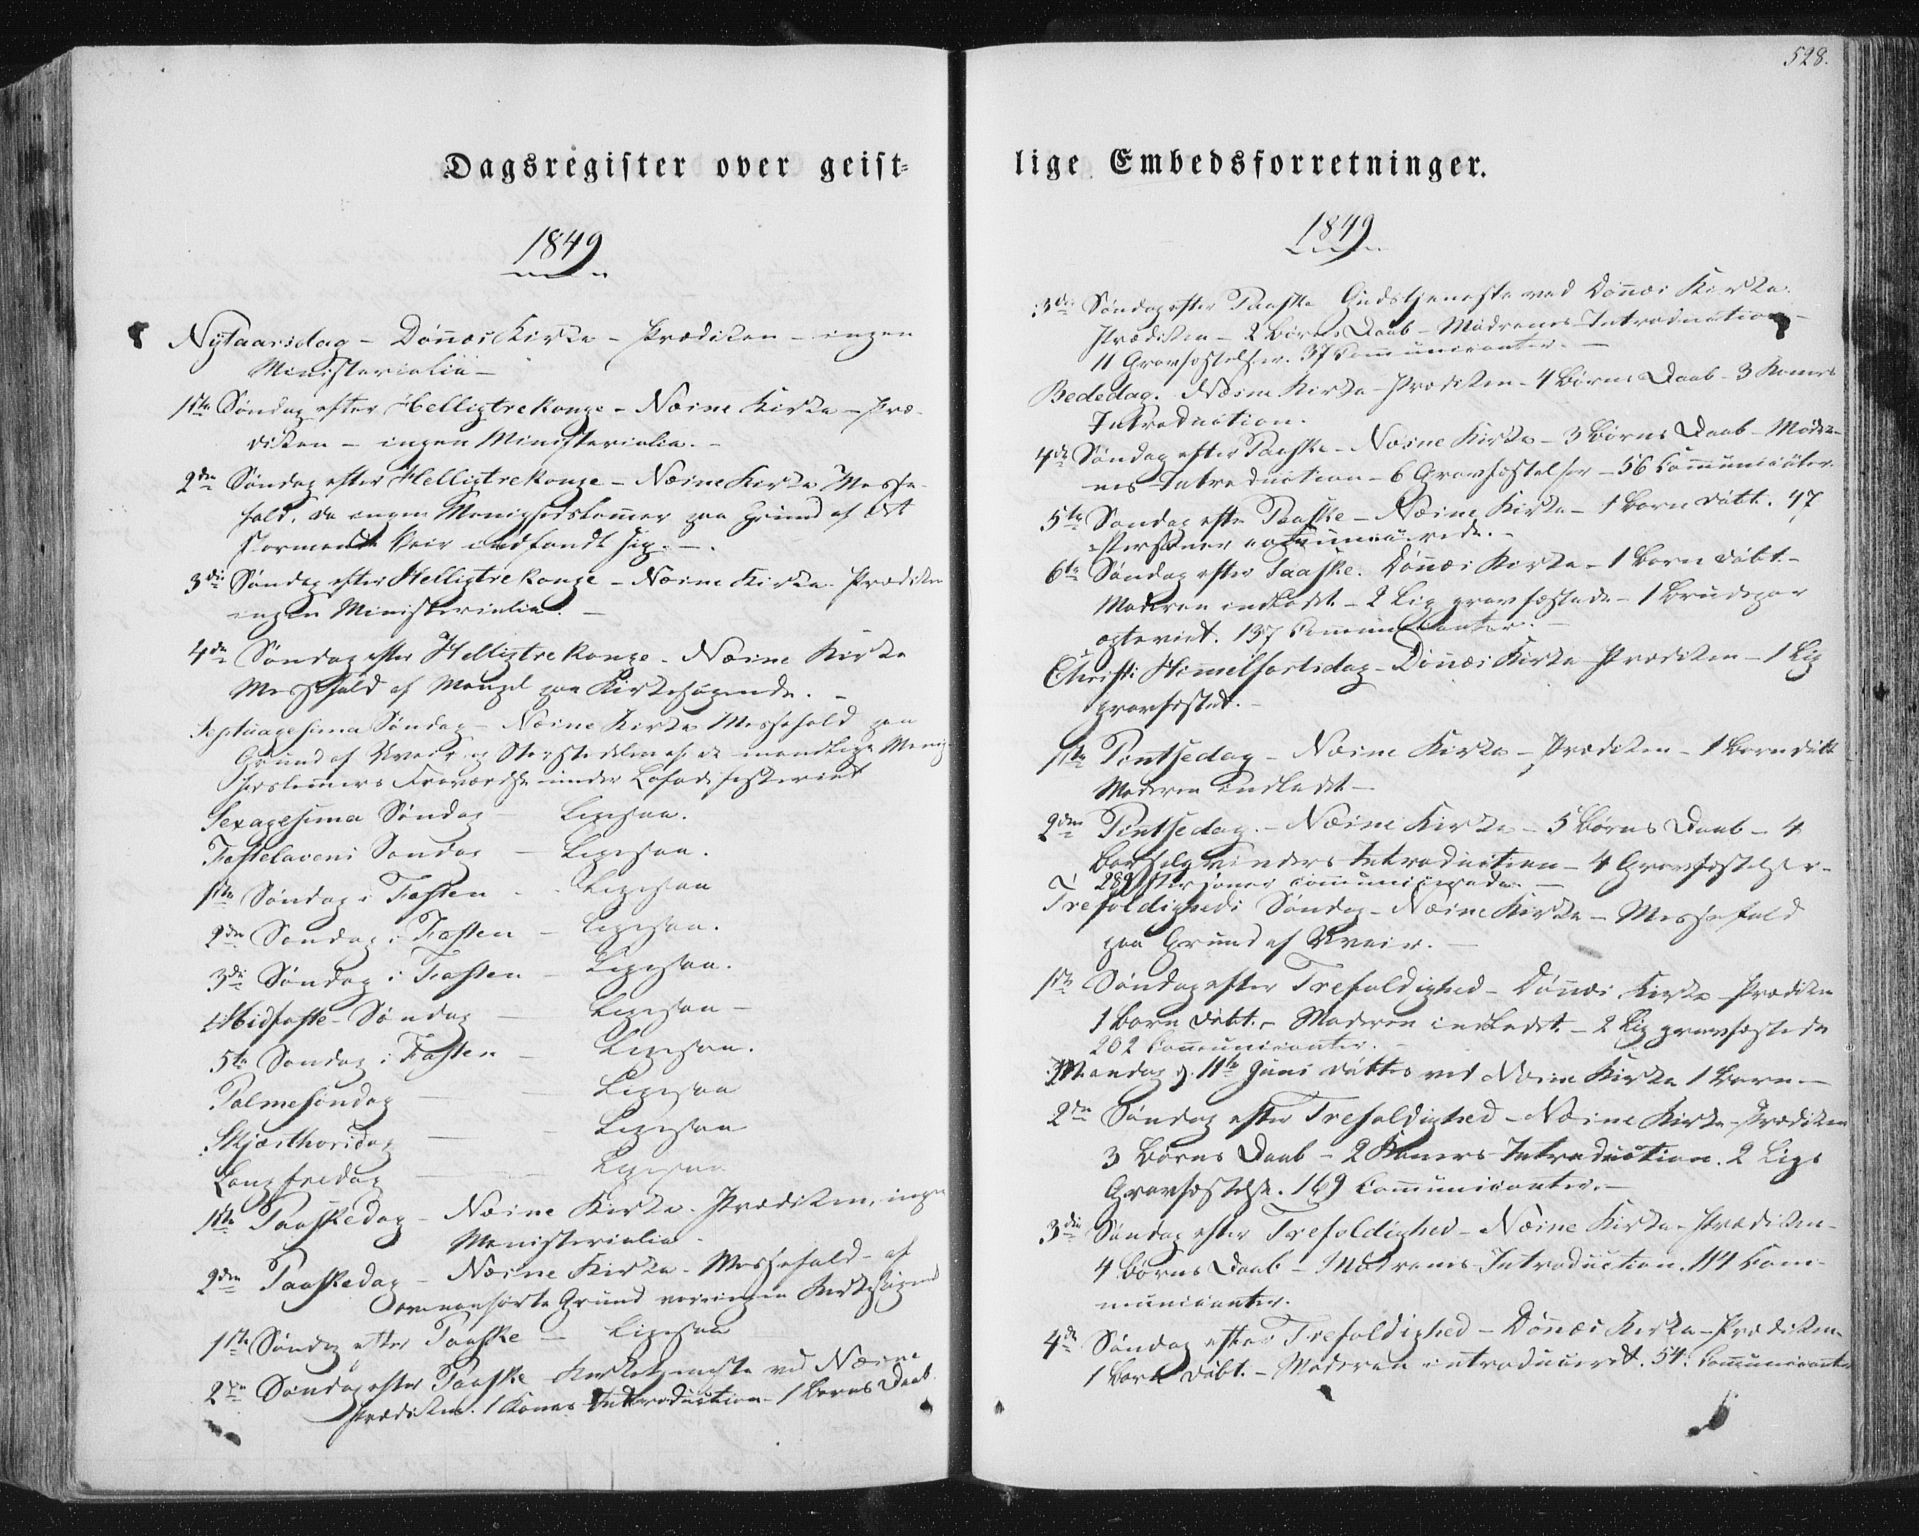 528.
Dagsregister over geist-
lige Embedsforretninger.
1849
Nytaarsdag – Dønnes Kirke – Prædiken – ingen
Ministerialia –
1ste Søndag efter Helligtrekonge – Næsne Kirke – Præ-
diken – ingen Ministerialia. –
2den Søndag efter Helligtrekonge – Næsne Kirke Messe-
fald, da ingen Menighedslemmer paa Grund af det
stormende Veir indfandt sig. –
3die Søndag efter Helligtrekonge – Næsne Kirke. Prædiken
ingen Ministerialia. –
4de Søndag efter Helligtrekonge – Næsne Kirke
Messefald af Mangel paa Kirkesøgende. –
Septuagesima Søndag – Næsne Kirke Messefald paa
Grund af Uveir og Størstedelen af de mandlige Menig-
hedslemmers Fraværelse under Lofodfiskeriet
Sexagesima Søndag – Ligesaa.
Fastelavens Søndag – Ligesaa.
1ste Søndag i Fasten – Ligesaa
2den Søndag i Fasten – Ligesaa.
3die Søndag i Fasten – Ligesaa.
Midfaste-Søndag – Ligesaa –
5te Søndag i Fasten – Ligesaa.
Palmesøndag – Ligesaa
Skjærthorsdag – Ligesaa
Langfredag – Ligesaa
1ste Paaskedag – Næsne Kirke. Prædiken, ingen
Ministerialia –
2den Paaskedag – Næsne Kirke – Messefald – af
ovenanførte Grund
1ste Søndag efter Paaske – Ligesaa
2den Søndag efter Paaske Kirketjeneste ved Næsne
Prædiken. 1 Kones Introduction – 1 Barns Daab.
1849
3die Søndag efter Paaske Gudstjeneste ved Dønnes Kirke.
Prædiken – 2 Børns Daab – Mødrenes Introduction –
11 Gravfæstelser. 37 Communicanter. –
Bededag. Næsne Kirke – Prædiken – 4 Børns Daab – 3 Koners
Introduction.
4de Søndag efter Paaske – Næsne Kirke – 3 Børns Daab – Mødre-
nes Introduction – 6 Gravfæstelser – 56 Communicanter.
5te Søndag efter Paaske – Næsne Kirke – 1 Barn døbt. 47
Personer communicerede. –
6te Søndag efter Paaske. Dønnes Kirke – 1 Barn døbt. –
Moderen indledet – 2 Lig gravfæstede – 1 Brudepar
ægteviet. 137 Communicanter. –
Christi Himmelfartsdag – Dønnes Kirke Prædiken – 1 Lig
gravfæstet. –
1ste Pintsedag – Næsne Kirke – Prædiken – 1 Barn døbt
Moderen indledet –
2den Pintsedag. – Næsne Kirke – 5 Børns Daab – 4
Barselqvinders Introduction – 4 Gravfæstelser.
289 Personer communicerede. –
Trefoldigheds Søndag – Næsne Kirke – Messefald
paa Grund af Uveir. –
1ste Søndag efter Trefoldighed – Dønnes Kirke – Prædiken
1 Barn døbt. – Moderen indledet. – 2 Lig gravfæstede
202 Communicanter. –
Mandag d. 11te Juni døbtes ved Næsne Kirke 1 Barn –
2den Søndag efter Trefoldighed – Næsne Kirke – Prædiken
3 Børns Daab – 2 Koners Introduction. 2 Ligs
Gravfæstelse. 169 Communicanter. –
3die Søndag efter Trefoldighed – Næsne Kirke – Prædiken –
4 Børns Daab – Mødrenes Introduction. 114 Com-
municanter.
4de Søndag efter Trefoldighed – Dønnes Kirke – Prædiken
1 Barn døbt. – Moderen introduceret. 54. Communicanter